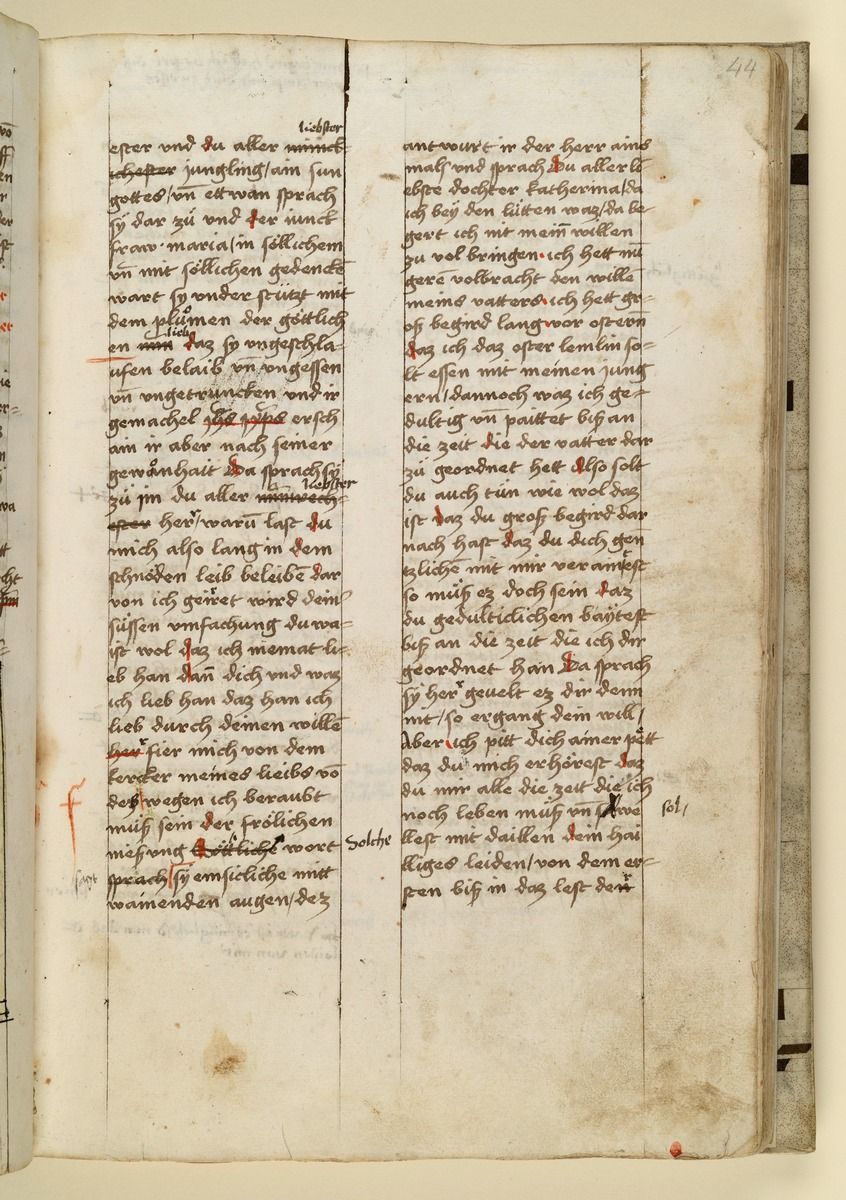 44
liebster
ester vnd du aller minck
ichester jungling/ain sun
gottes/vn̄ ettwan sprach
sÿ dar zů vnd der iunck
fraw· maria/in söllichem
vn̄ mit söllichen gedenckē
wart sy vnder stützt mit
dem plůmen der göttlich
lieb
en min daz sy vngeschla-
ufen belaib vn̄ vngessen
vn̄ vngetruncken vnd ir
gemachel jhs xp̄s ersch
ain ir aber nach seiner
gewonhait Da sprach sÿ
liebster
zů im du aller minnech-
ester her/warū last du
mich also lang in dem
schnöden leib beleibē dar
von ich geirret wird dein
süssen vmfachung du wa-
ist wol daz ich niemat li-
eb han dan̄ dich vnd waz
ich lieb han daz han ich
lieb durch deinen willē
her fier mich von dem
kercker meines leibs vō
dez wegen ich beraubt
můß sein der frölichen
niessung Göttliche wort Solche
sagt sprach/sÿ emsicliche mitt
wainenden augen/dez
antwurt ir der herr ains
mals vnd sprach Du aller li-
ebste dochter katherina/da
ich bey den lütten waz/da be-
gert ich nit mein̄ willen
zu vol bringen· ich hett nū
gerē volbracht den willē
meins vatters· ich hett gr-
oß begird lang vor ostern̄
daz ich daz oster lemlin so-
lt essen mit meinen jung
ern/dannoch waz ich ge-
dultig vn̄ paittet biß an
die zeit die der vatter dar
zů geordnet hett Also solt
du auch tůn wie wol daz
ist daz du groß begird dar
nach hast daz du dich gen̄
tzlichen mit mir verainest
so můß ez doch sein daz
du gedulticlichen baÿtest
biß an die zeit die ich dir
geordnet han Da sprach
sÿ her gevelt ez dir denn
nit/so ergang dein will/
Aber ich pitt dich ainer pett
daz du mich erhörest daz
du mir alle die zeit die ich
noch leben můß vn̄ we sol/
llest mit daillen dein hai
lliges leiden/von dem er-
sten biß in daz lest den